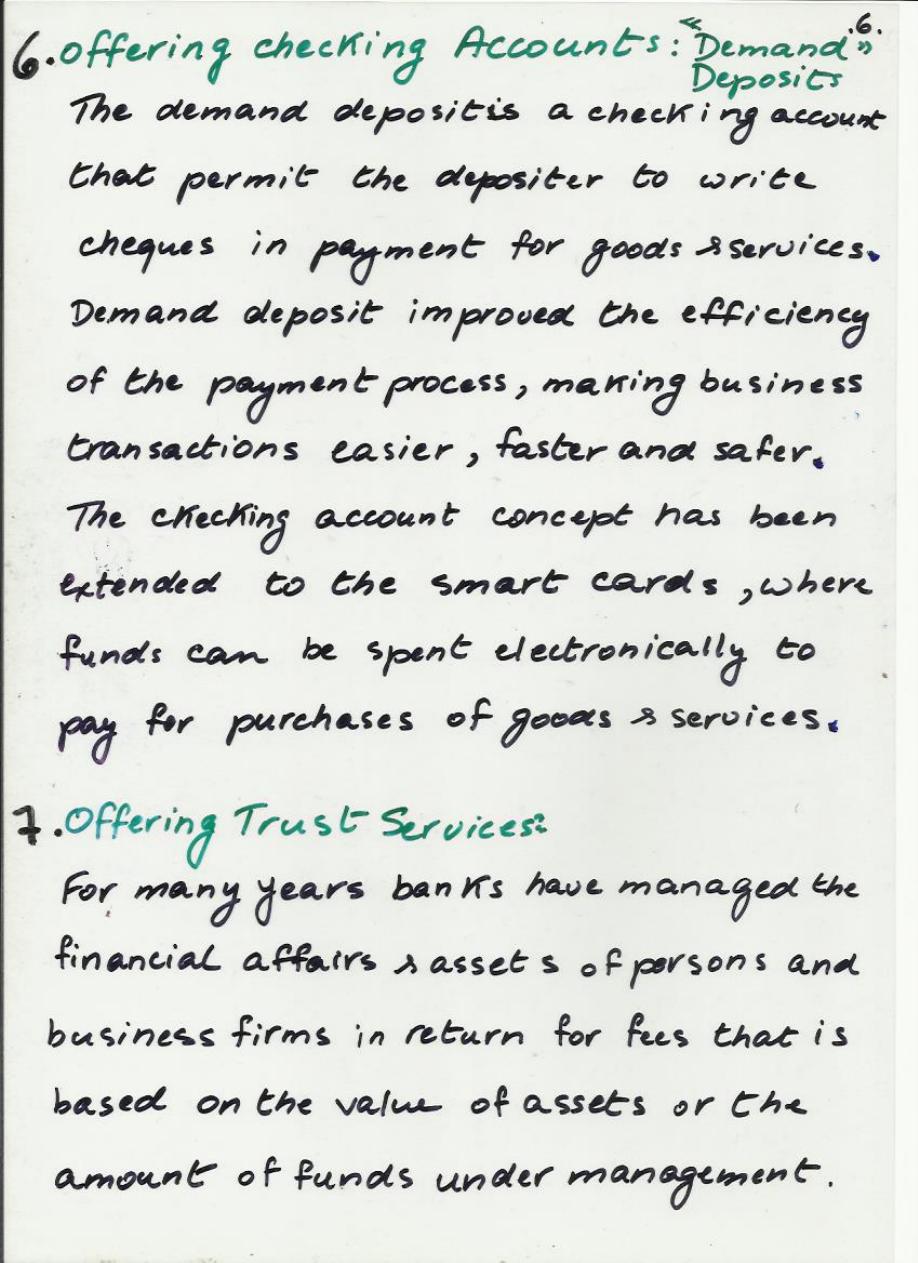 .6.
6. offering checking Accounts: "Demand"
Deposits
The demand depositis a checking account
that permit the depositer to write
cheques in payment for goods & services.
Demand deposit improved the efficiency
of the payment process, making business
transactions easier, faster and safer.
The ckecking account concept has been
extended to the smart cards, where
funds can be spent electronically to
pay for purchases of goods & services.
7. Offering Trust Services:
For many years banks have managed the
financial affairs & assets of persons and
business firms in return for fees that is
based on the value of assets or the
amount of funds under management.